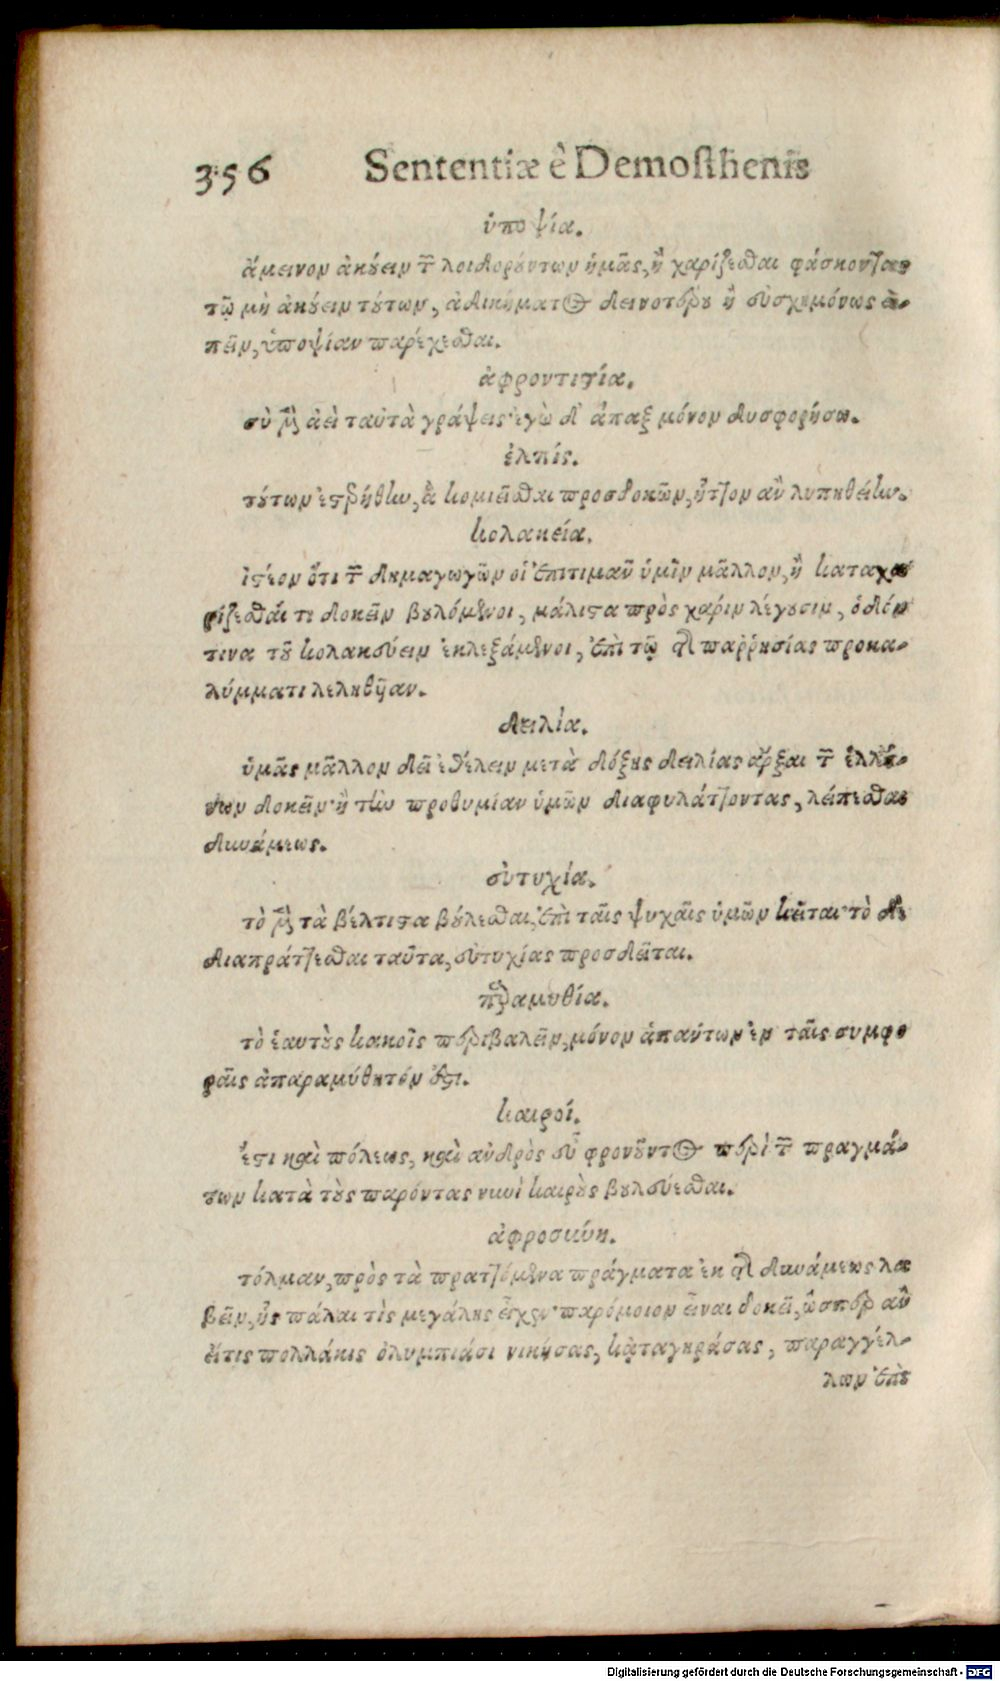 356 Sententiæ è Demosthenis
ὑποψία.
ἄμεινον ἀκούειν τῶν λοιδορούντων ἡμᾶς, ἢ χαρίζεσθαι φάσκοντας
τῷ μὴ ἀκούειν τούτων, ἀδικήματος δεινοτέρου ἢ εὐσχημόνως εἰ-
πεῖν, ὑποψίαν παρέχεσθαι.
ἀφροντιστία.
σὺ μὲν ἀεὶ ταῦτὰ γράψεις· ἐγὼ δ' ἅπαξ μόνον δυσφορήσω.
ἐλπίς.
τούτων ἐστερήθην, ἃ κομιεῖσθαι προσδοκῶν, ἧττον ἂν λυπηθείην.
κολακεία.
ἰστέον ὅτι τῶν δημαγωγῶν οἱ ἐπιτιμᾶν ὑμῖν μᾶλλον, ἢ καταχα
ρίζεσθαί τι δοκεῖν βουλόμενοι, μάλιστα πρὸς χάριν λέγουσιν, ὁδόν
τινα τοῦ κολακεύειν ἐκλεξάμενοι, ἐπὶ τῷ τῆς παῤῥησίας προκα-
λύμματι λεληθυῖαν.
δειλία.
ὑμᾶς μᾶλλον δεῖ ἐθέλειν μετὰ δόξης δειλίας ἄρξαι τῶν ἑλλή-
νων δοκεῖν· ἢ τὴν προθυμίαν ὑμῶν διαφυλάττοντας, λείπεσθαι
δυνάμεως.
εὐτυχία.
τὸ μὲν τὰ βέλτιστα βούλεσθαι, ἐπὶ ταῖς ψυχαῖς ὑμῶν κεῖται· τὸ δὲ
διαπράττεσθαι ταῦτα, εὐτυχίας προσδεῖται.
παραμυθία.
τὸ ἑαυτοὺς κακοῖς περιβαλεῖν, μόνον ἁπάντων ἐν ταῖς συμφο
ραῖς ἀπαραμύθητόν ἐστι.
καιροί.
ἔστι καὶ πόλεως, καὶ ἀνδρὸς εὖ φρονοῦντος περὶ τῶν πραγμά-
των κατὰ τοὺς παρόντας νυνὶ καιροὺς βουλεύεσθαι.
ἀφροσύνη.
τόλμαν, πρὸς τὰ πραττόμενα πράγματα ἐκ τῆς δυνάμεως λα
βεῖν, ἧς πάλαι τὶς μεγάλης εἶχεν· παρόμοιον εἶναι δοκεῖ, ὥσπερ ἂν
εἴτις πολλάκις ὀλυμπιάσι νικήσας, καταγηράσας, παραγγέλ-
λων ἐπὶ
Digitalisierung gefördert durch die Deutsche Forschungsgemeinschaft - DFG